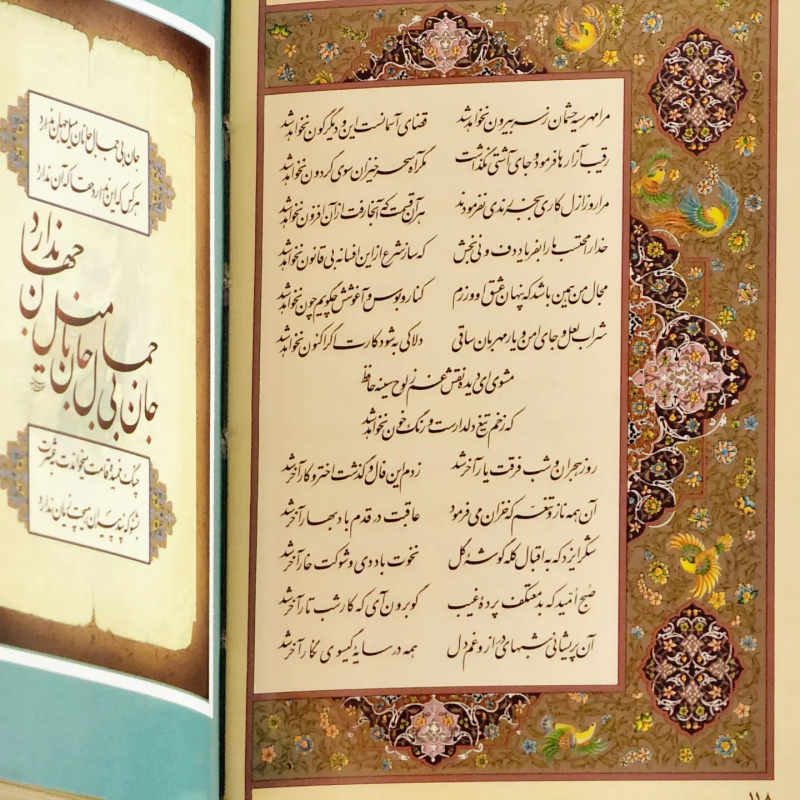 مرا مهر سیه چشمان ز سر بیرون نخواهد شد قضای آسمانست این و دیگرگون نخواهد شد
رقیب آزارها فرمود و جای آشتی نگذاشت مگر آه سحرخیزان سوی گردون نخواهد شد
مرا روز ازل کاری بجز رندی نفرمودند هر آن قسمت که آنجا رفت از آن افزون نخواهد شد
خدا را محتسب ما را به فریاد دف و نی بخش که ساز شرع از این افسانه بی قانون نخواهد شد
مجال من همین باشد که پنهان عشق او ورزم کنار و بوس و آغوشش چگویم چون نخواهد شد
شراب لعل و جای امن و یار مهربان ساقی دلا کی به شود کارت اگر اکنون نخواهد شد
مشوی ای دیده نقش غم ز لوح سینه حافظ
که زخم تیغ دلدارست و رنگ خون نخواهد شد
روز هجران و شب فرقت یار آخر شد زدم این فال و گذشت اختر و کار آخر شد
آن همه ناز و تنعم که خزان می فرمود عاقبت در قدم باد بهار آخر شد
شکر ایزد که به اقبال کله گوشه گل نخوت باد دی و شوکت خار آخر شد
صبح امید که بد معتکف پرده غیب گو برون آی که کار شب تار آخر شد
آن پریشانی شبهای دراز و غم دل همه در سایه گیسوی نگار آخر شد
۱۱۸
جان بی جمال جانان میل جهان ندارد
هر کس که این ندارد حقا که آن ندارد
جان بی جمال جانان میل جهان ندارد
چنگ خمیده قامت میخواندت به عشرت
بشنو که پند پیران هیچت زیان ندارد